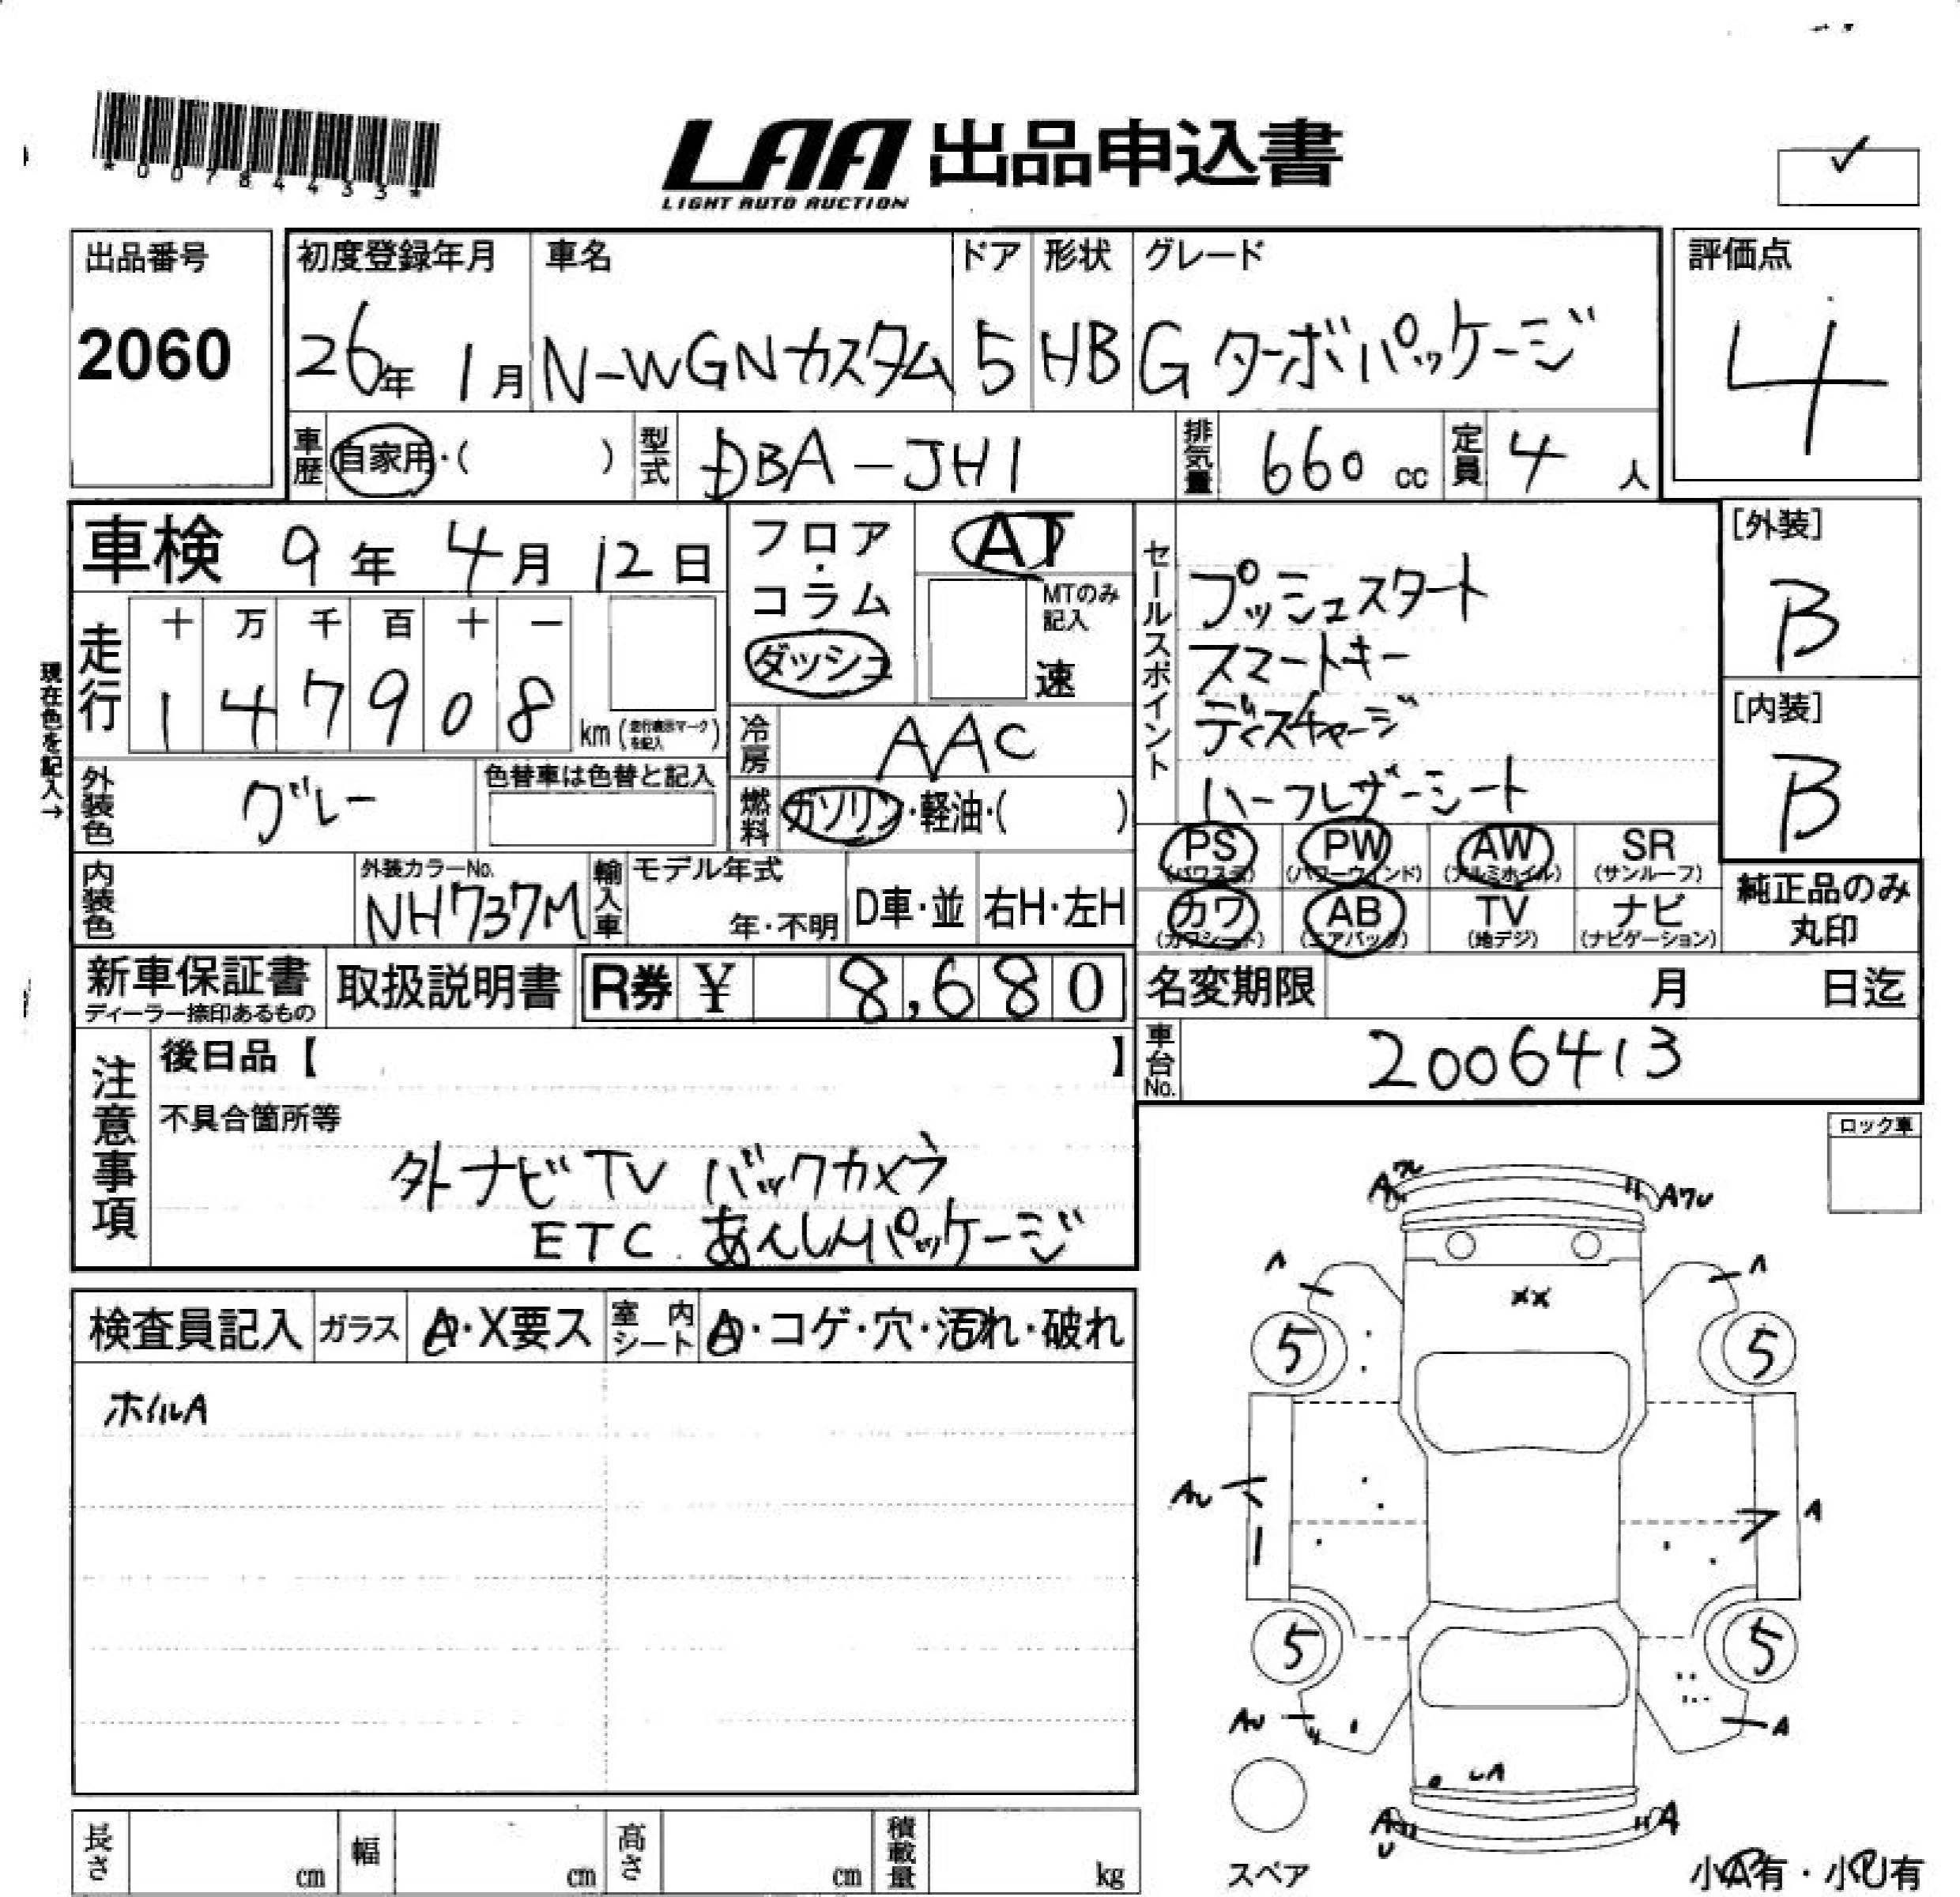 *0078443 3*
LAA 出品申込書
LIGHT AUTO AUCTION
✓
出品番号
2060
初度登録年月
26年 1月
車名
N-WGNカスタム
ドア
5
形状
HB
グレード
G ターボパッケージ
評価点
4
車歴 自家用・( )
型式 DBA-JH1
排気量 660 cc
定員 4 人
車検 9年 4月 12日
現在色を記入→
走行 十 万 千 百 十 一
1 4 7 9 0 8 km (走行表示マークを記入)
フロア・コラム
ダッシュ
AT
MTのみ記入
速
冷房 AAC
燃料 ガソリン・軽油・( )
セールスポイント
プッシュスタート
スマートキー
ディスチャージ
ハーフレザーシート
[外装]
B
[内装]
B
外装色 グレー
色替車は色替と記入
内装色
外装カラーNo.
NH737M
輸入車
モデル年式
年・不明
D車・並
右H・左H
PS (パワステ)
PW (パワーウィンド)
AW (アルミホイル)
SR (サンルーフ)
カワ (カワシート)
AB (エアバック)
TV (地デジ)
ナビ (ナビゲーション)
純正品のみ丸印
新車保証書
ディーラー捺印あるもの
取扱説明書
R券 ¥ 8,680
名変期限 月 日迄
車台No. 2006413
注意事項
後日品【 】
不具合箇所等
外ナビ TV バックカメラ
ETC. あんしんパッケージ
ロック車
検査員記入
ガラス A・X要ス
室内シート A・コゲ・穴・汚れ・破れ
ホイルA
A
AワU
A
A
XX
5
5
AU
A
5
5
AU
A
UA
AU
A
スペア
小A有・小U有
長さ cm
幅 cm
高さ cm
積載量 kg